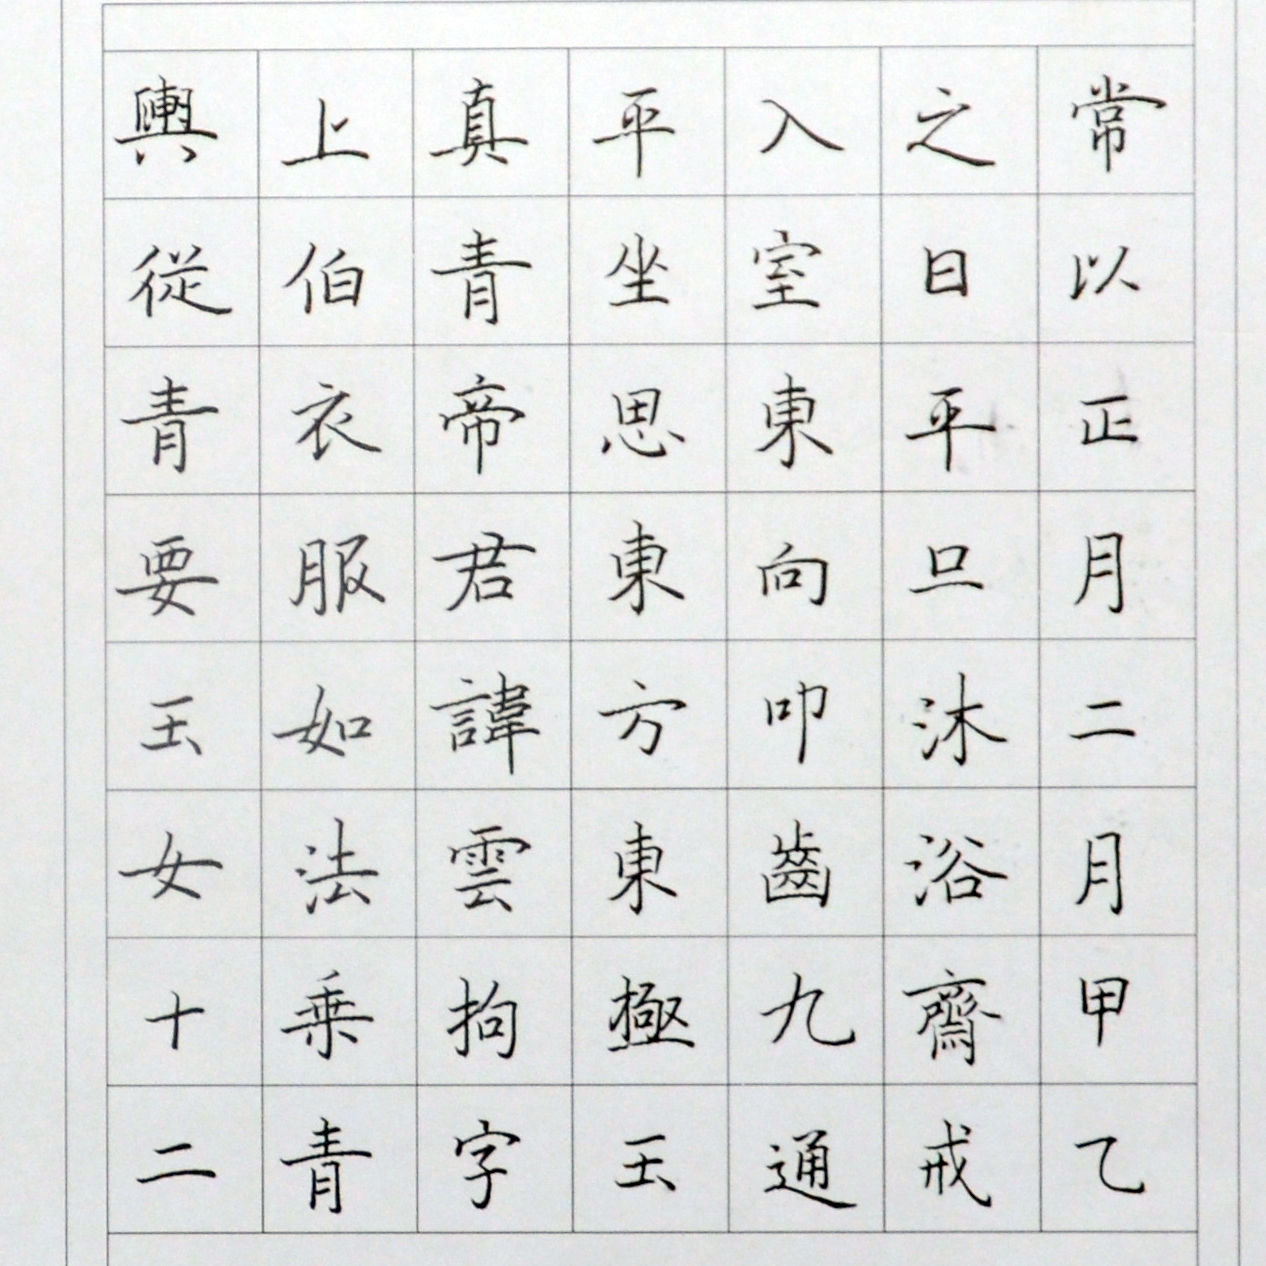 常以正月二月甲乙
之日平旦沐浴齋戒
入室東向叩齒九通
平坐思東方東極玉
真青帝君諱雲拘字
上伯衣服如法乗青
輿従青要玉女十二